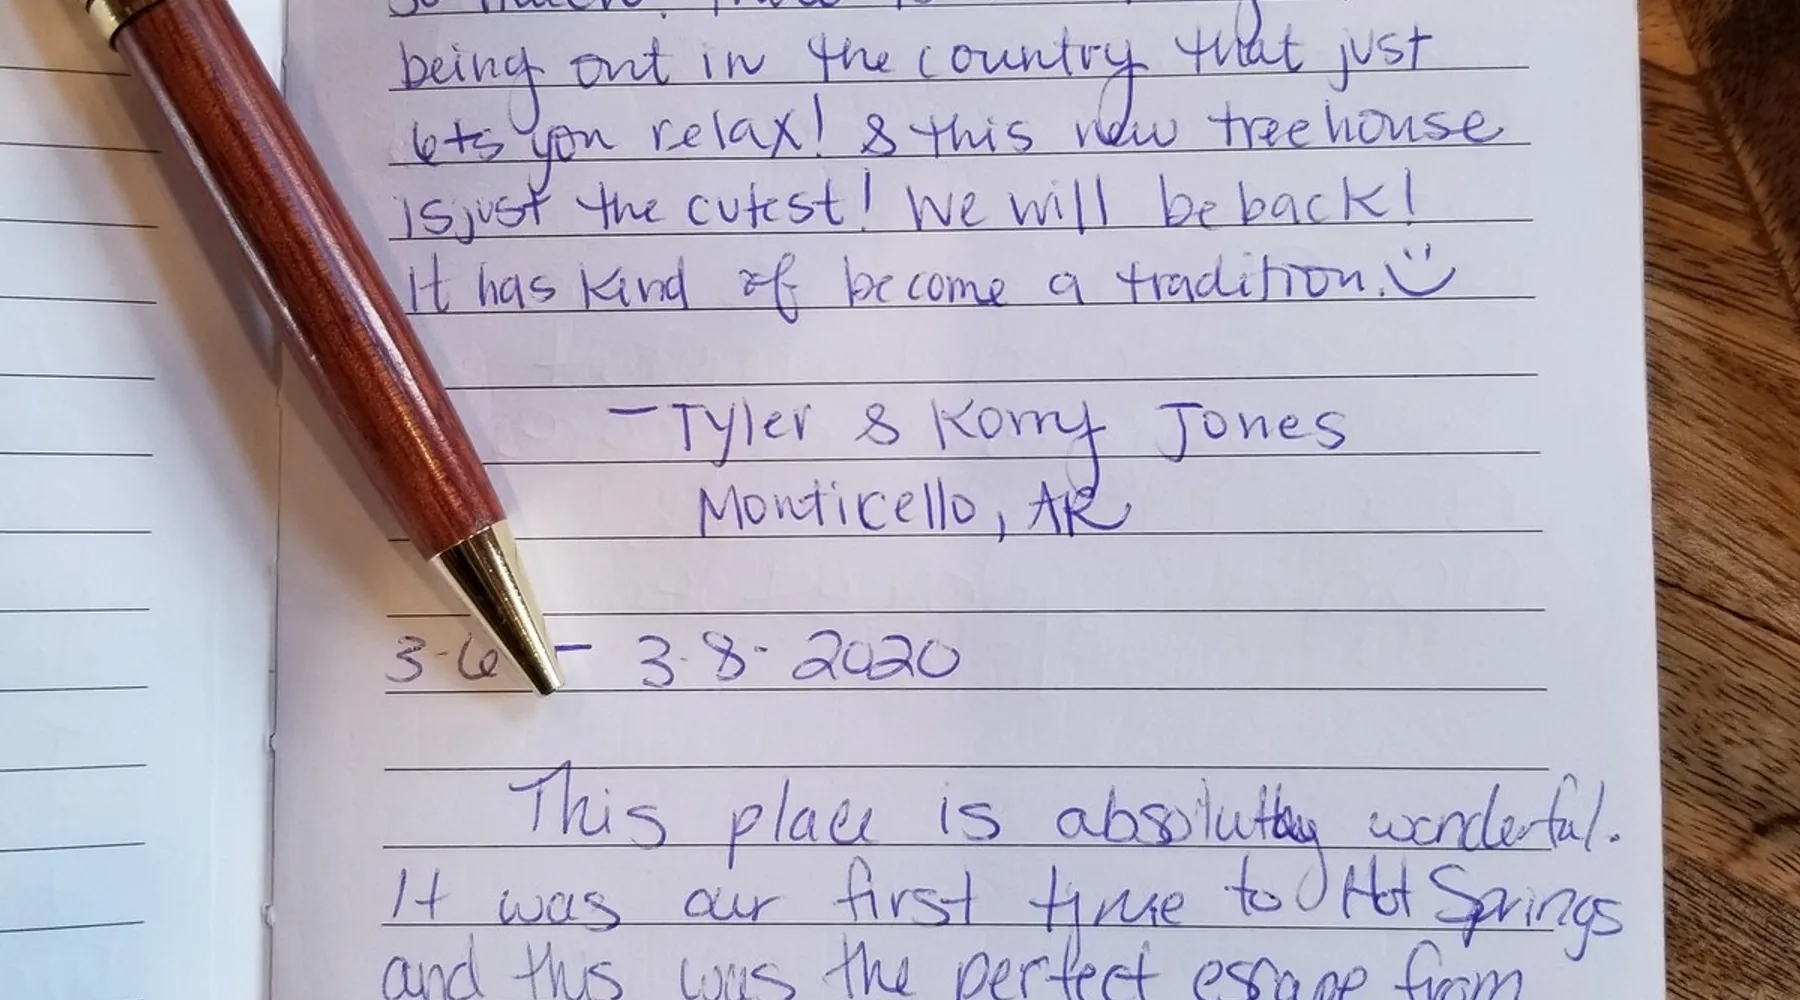 so much!
being out in the country that just
lets you relax! & this new treehouse
is just the cutest! We will be back!
It has kind of become a tradition. :)
- Tyler & Korry Jones
Monticello, AR
3-6 - 3-8-2020
This place is absolutely wonderful.
It was our first time to Hot Springs
and this was the perfect escape from